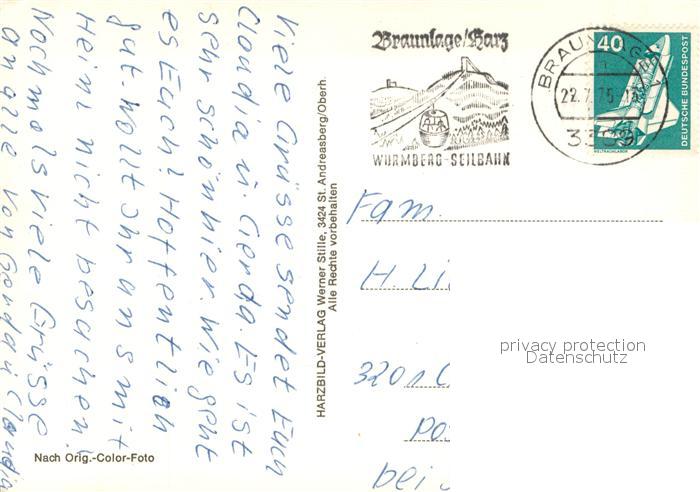 Viele Grüsse sendet Euch
Claudia u. Gerda. Es ist
sehr schön hier. Wie geht
es Euch! Hoffentlich
gut. Wollt Ihr uns mit
Heini nicht besuchen!
Nochmals viele Grüsse
an alle von Gerda u Claudia
Nach Orig.-Color-Foto
HARZBILD-VERLAG Werner Stille, 3424 St. Andreasberg/Oberh.
Alle Rechte vorbehalten
Braunlage/Harz
WURMBERG-SEILBAHN
22.7.75
40
DEUTSCHE BUNDESPOST
WELTRAUMLABOR
Fam.
H Li
3201
Po
bei
privacy protection
Datenschutz